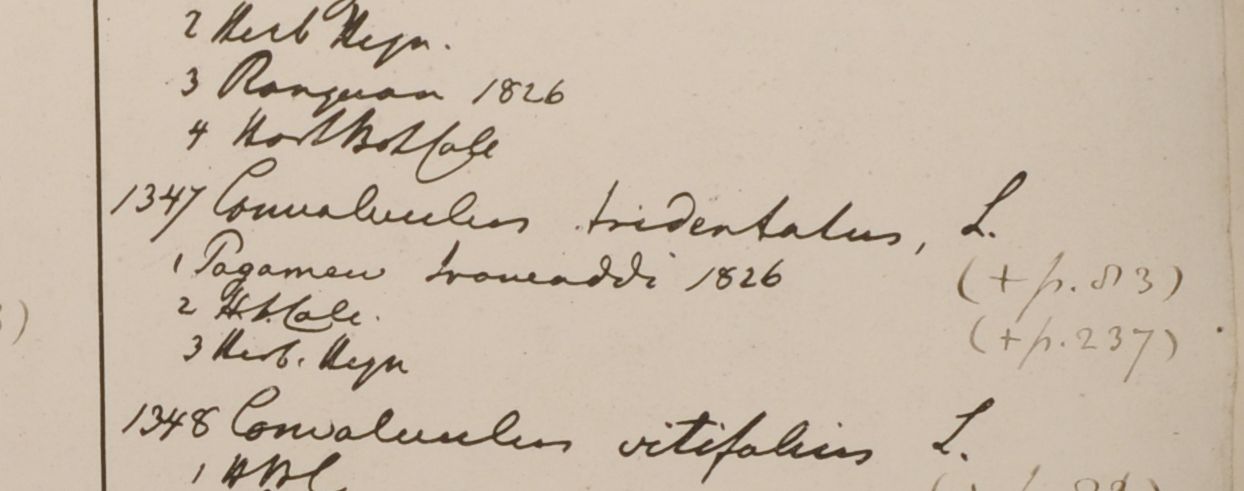 2 Herb Heyn.
3 Rangoon 1826
4 Hort Bot Calc
1347 Convolvulus tridentatus, L.
1 Pagamew Irawaddi 1826 (+ p. 83)
2 H.b.Calc.
(+p.237)
3 Herb. Heyn
1348 Convolvulus vitifolius L.
1 HBC